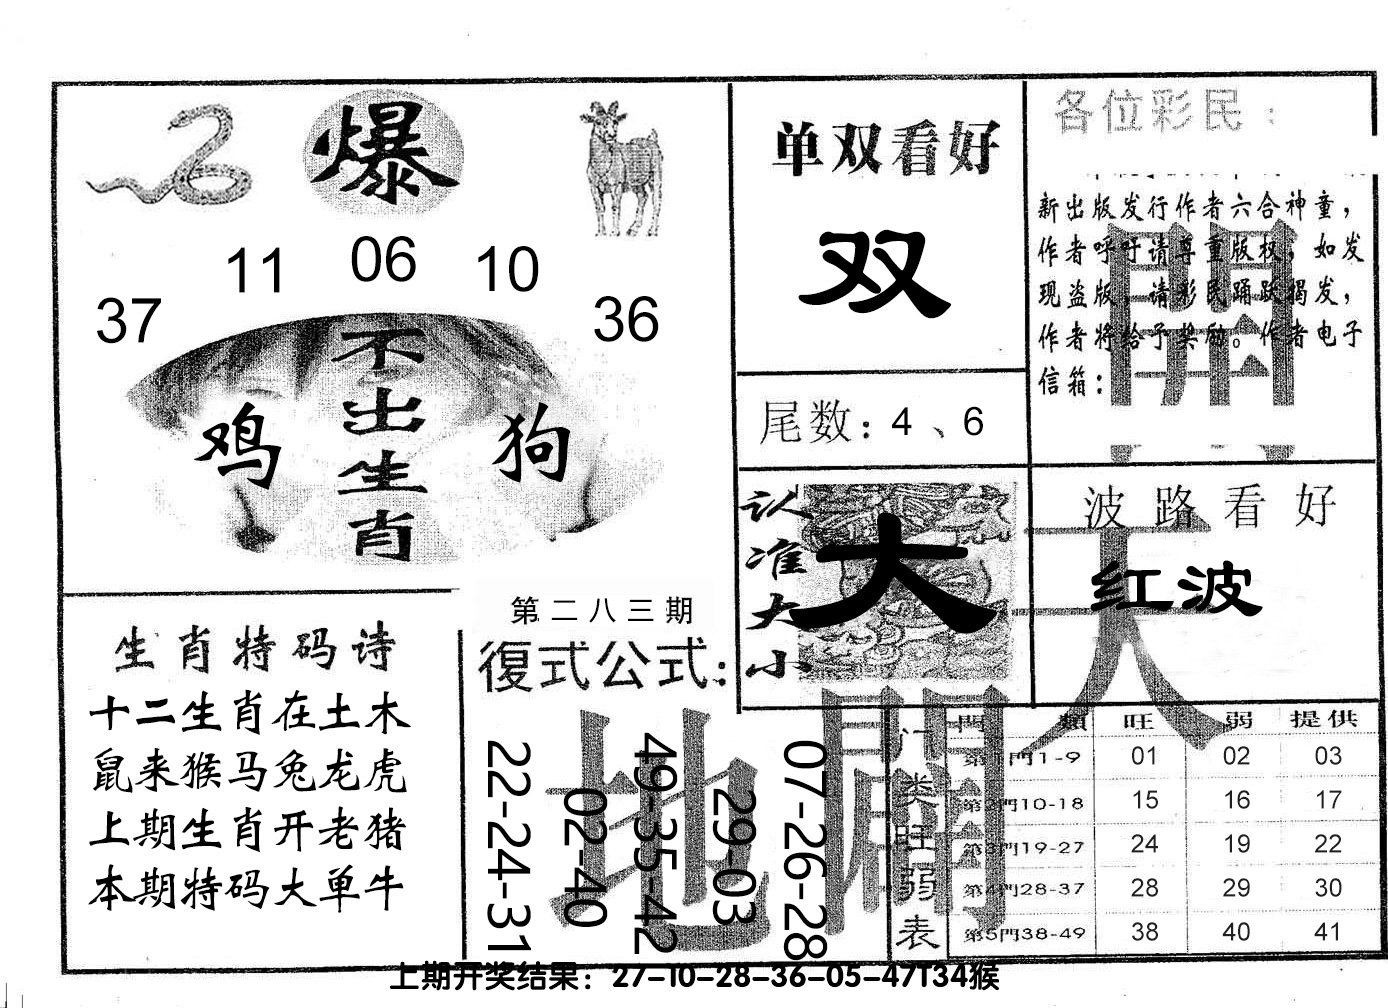 爆
37 11 06 10 36
不出生肖
鸡 狗
单双看好
双
尾数：4、6
各位彩民：
新出版发行作者六合神童，
作者呼吁请尊重版权，如发
现盗版，请彩民踊跃揭发，
作者将给予奖励。作者电子
信箱：
认准大小
大
波路看好
红波
天
開
地
闢
生肖特码诗
十二生肖在土木
鼠来猴马兔龙虎
上期生肖开老猪
本期特码大单牛
第二八三期
復式公式：
22-24-31
02-40
49-35-42
29-03
07-26-28
门类旺弱表
門類 旺 弱 提供
第1門1-9 01 02 03
第2門10-18 15 16 17
第3門19-27 24 19 22
第4門28-37 28 29 30
第5門38-49 38 40 41
上期开奖结果：27-10-28-36-05-47T34猴